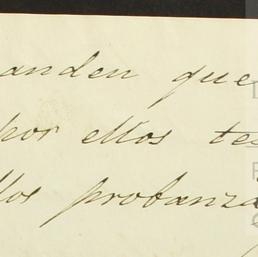 anden que
por ellos te
llos probanza